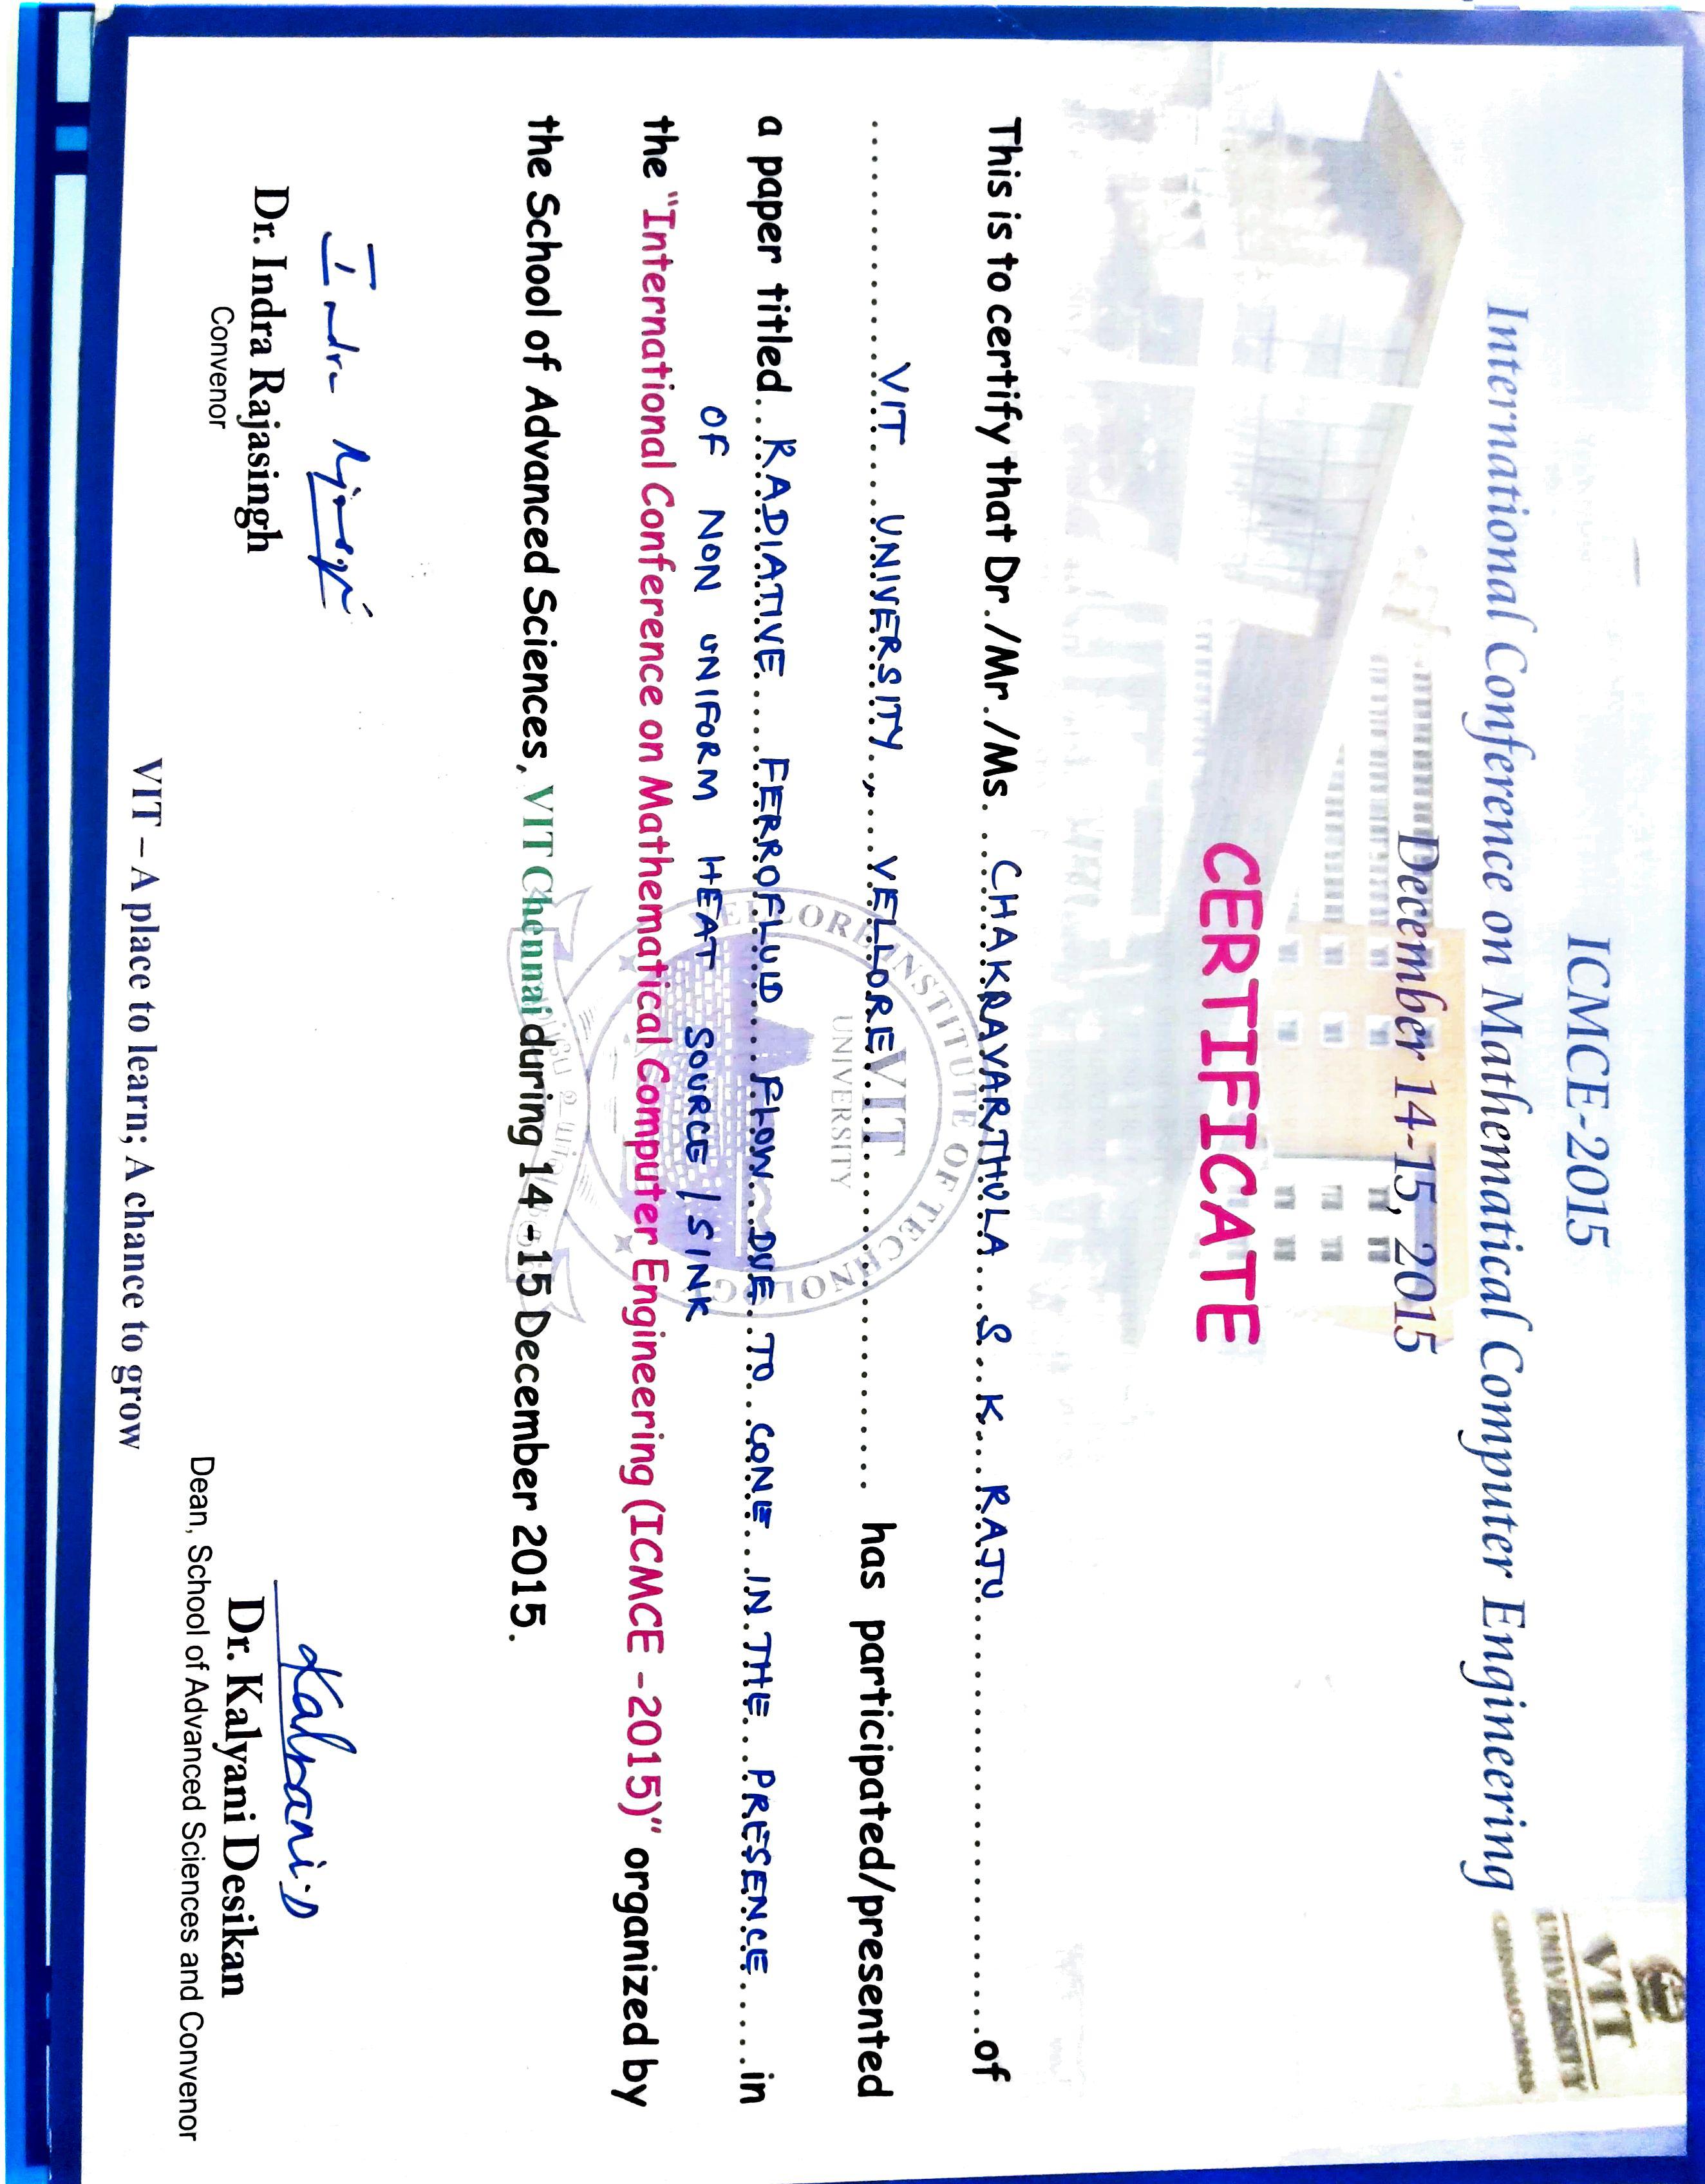 ICMCE-2015
International Conference on Mathematical Computer Engineering
December 14-15, 2015
VIT
UNIVERSITY
CERTIFICATE
This is to certify that Dr./Mr./Ms. ..CHAKRAVARTHULA...S...K...RAJU..............................of
....................VIT....UNIVERSITY..,....VELLORE.............................. has participated/presented
a paper titled...RADIATIVE....FERROFLUID....FLOW...DUE...TO...CONE...IN.THE...PRESENCE.....in
OF NON UNIFORM HEAT SOURCE / SINK
the "International Conference on Mathematical Computer Engineering (ICMCE -2015)" organized by
the School of Advanced Sciences, VIT Chennai during 14 -15 December 2015.
VELLORE INSTITUTE OF TECHNOLOGY
VIT
UNIVERSITY
Kalyani.D
Dr. Indra Rajasingh
Convenor
Dr. Kalyani Desikan
Dean, School of Advanced Sciences and Convenor
VIT – A place to learn; A chance to grow